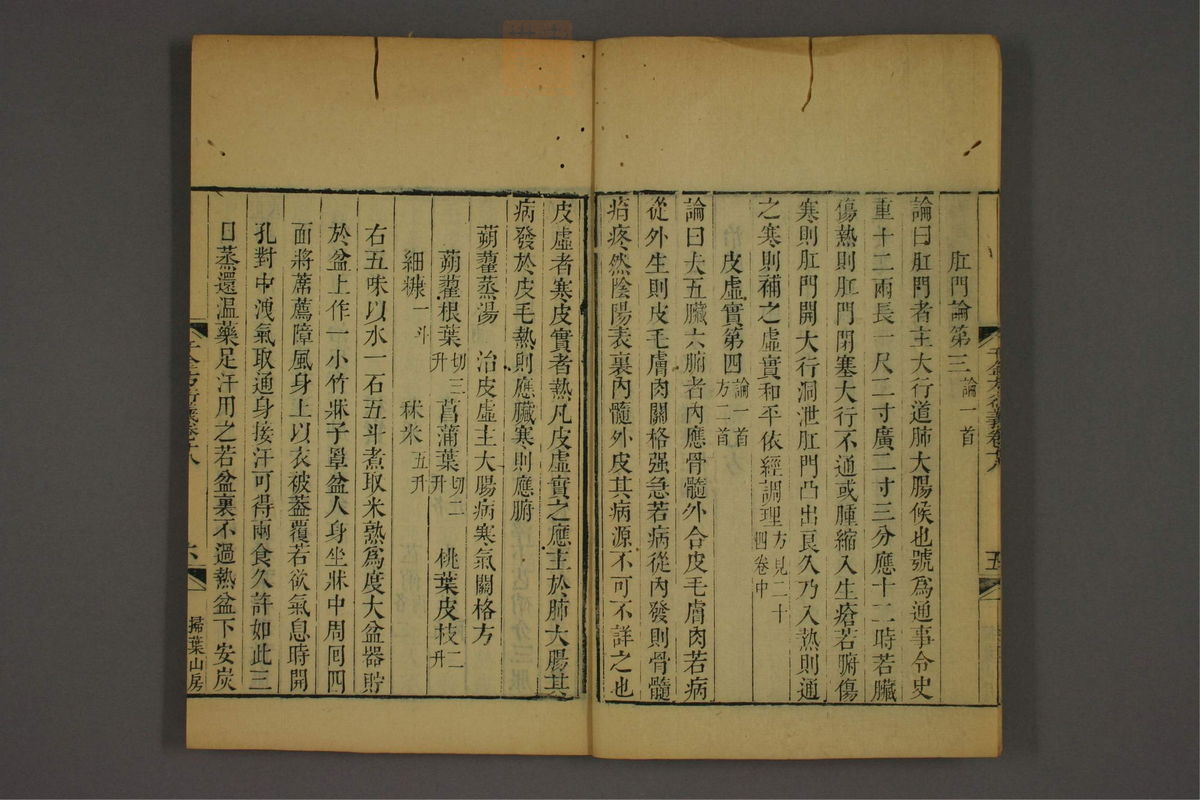 肛門論第三論一首
論曰肛門者主大行道肺大腸候也號爲通事令史
重十二兩長一尺二寸廣二寸三分應十二時若臟
傷熱則肛門閉塞大行不通或腫縮入生瘡若腑傷
寒則肛門開大行洞泄肛門凸出良久乃入熱則通
之寒則補之虛實和平依經調理方見二十四卷中
皮虛實第四論一首方二首
論曰夫五臟六腑者內應骨髓外合皮毛膚肉若病
從外生則皮毛膚肉關格强急若病從內發則骨髓
疼然陰陽表裏內髓外皮其病源不可不詳之也
五
皮虛者寒皮實者熱凡皮虛實之應主於肺大腸其
病發於皮毛熱則應臟寒則應腑
蒴藋蒸湯 治皮虛主大腸病寒氣關格方
蒴藋根葉切三升 菖蒲葉切二升 桃葉皮枝二升
細糠一斗 秫米五升
右五味以水一石五斗煮取米熟爲度大盆器貯
於盆上作一小竹牀子罩盆人身坐牀中周回四
面將蓆薦障風身上以衣被蓋覆若欲氣息時開
孔對中洩氣取通身接汗可得兩食久許如此三
日蒸還温藥足汗用之若盆裏不過熱盆下安炭
千金方衍義卷十八
六
掃葉山房